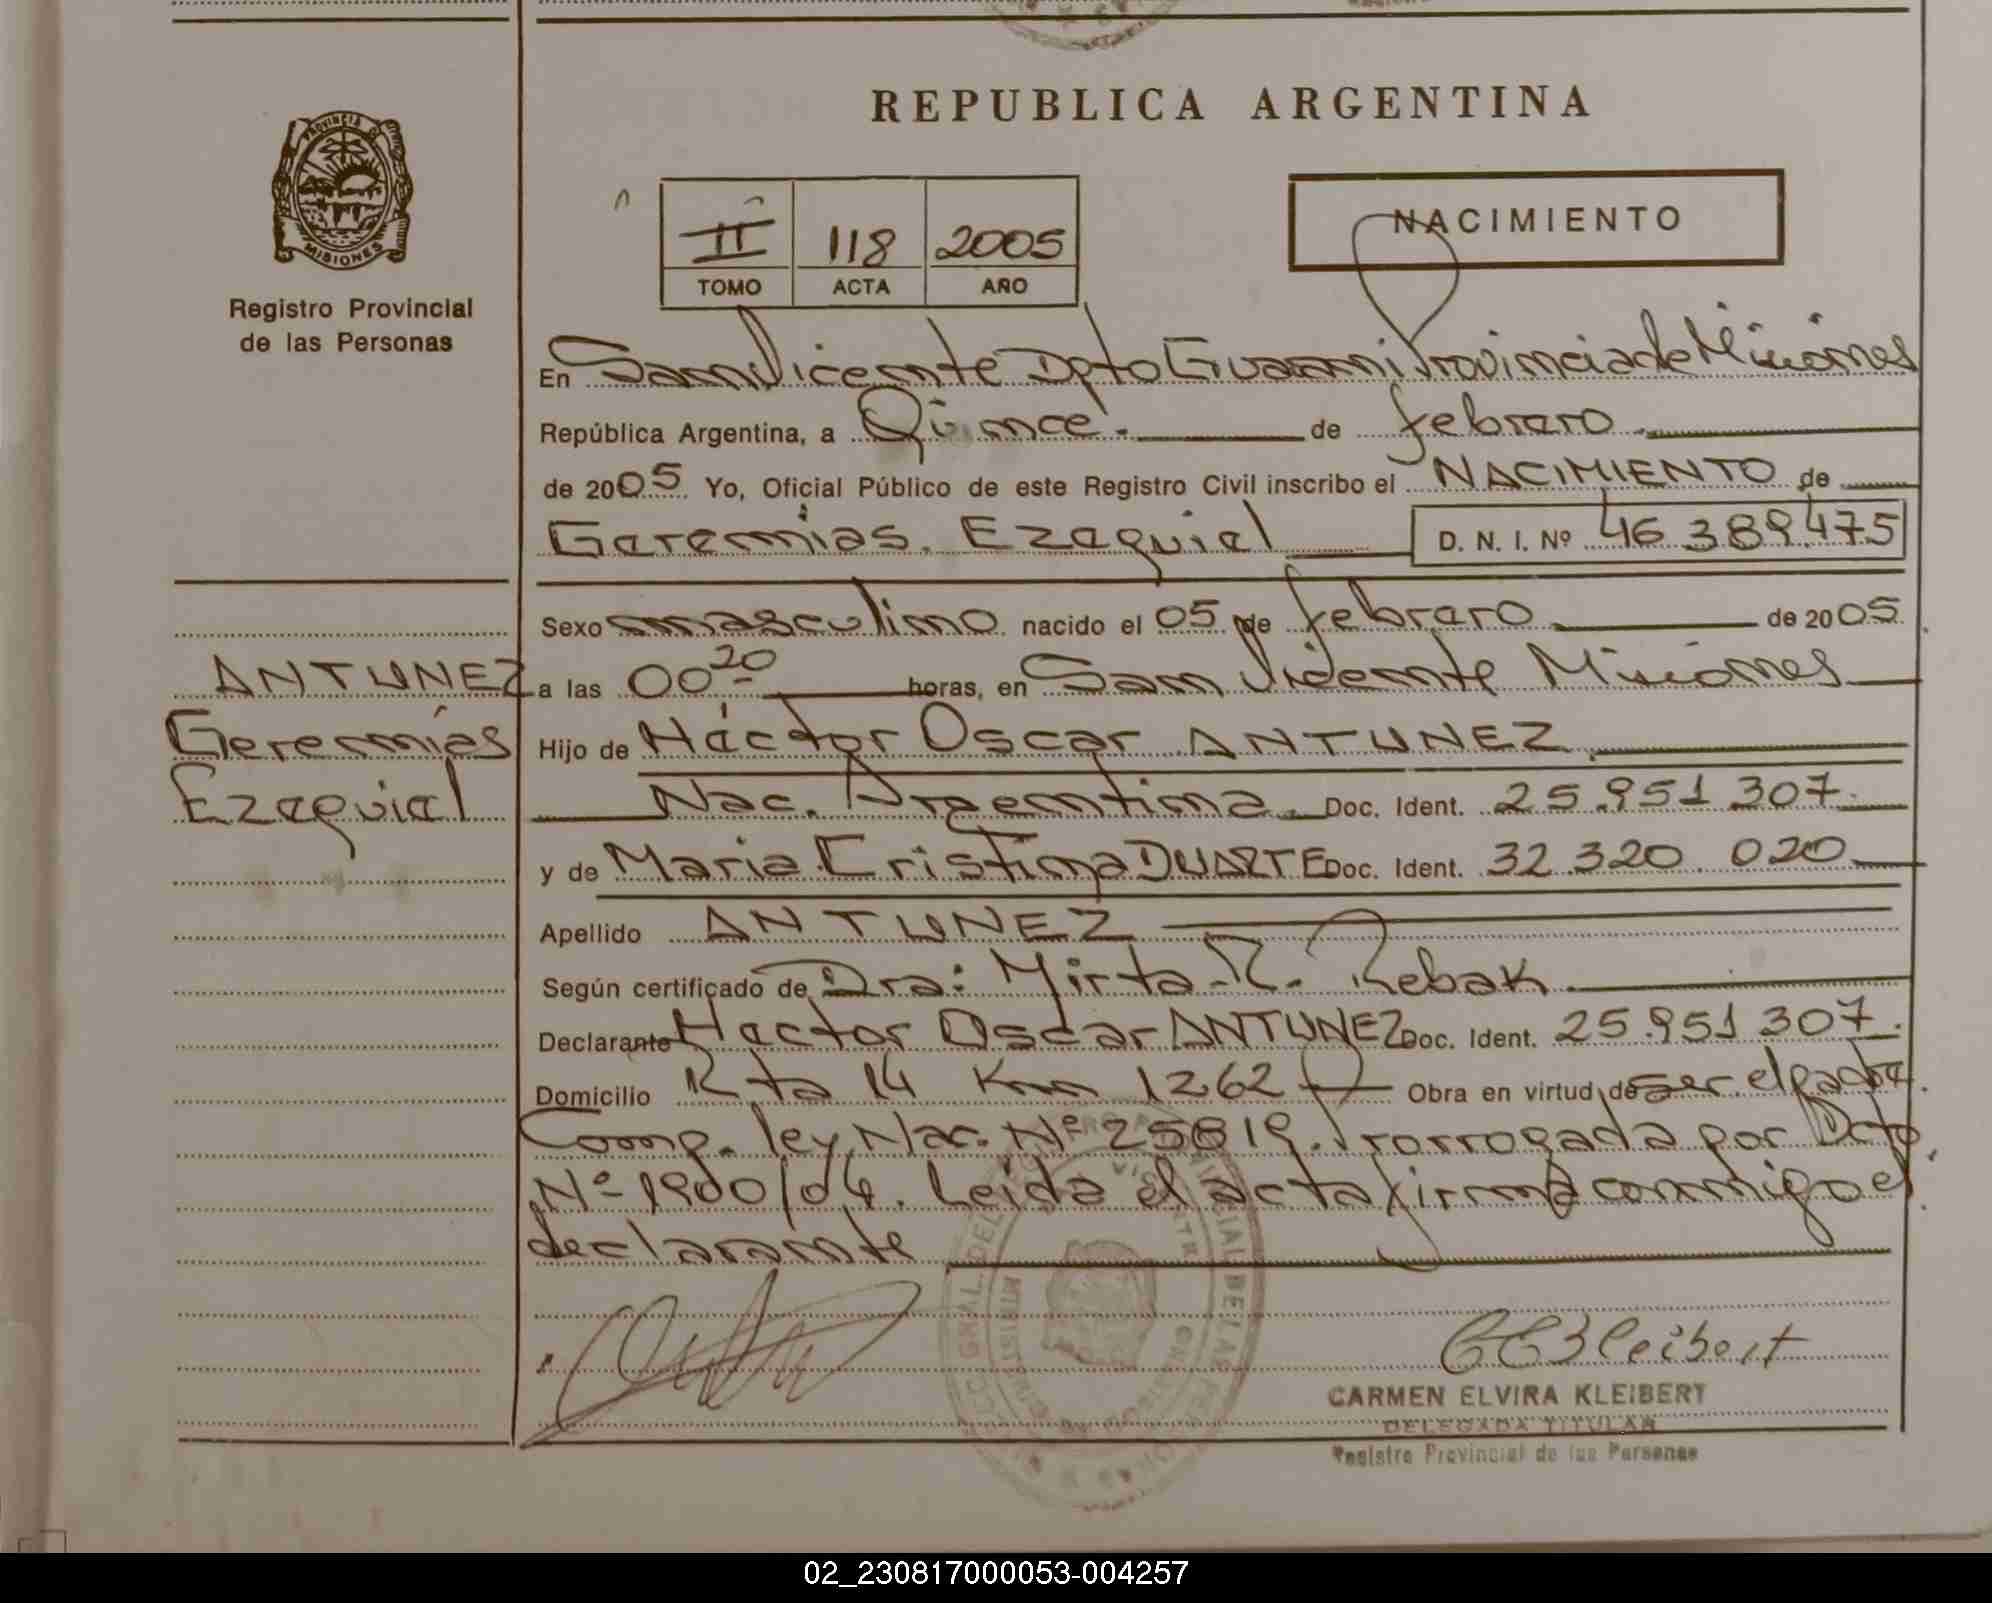 REPUBLICA ARGENTINA
PROVINCIA D
MISIONES
Registro Provincial
de las Personas
II 118 2005
TOMO ACTA AÑO
NACIMIENTO
En San Vicente Dpto Guarani Provincia de Misiones
República Argentina, a Quince.- de febrero.
de 2005. Yo, Oficial Público de este Registro Civil inscribo el NACIMIENTO de
Geremias. Ezequiel D. N. I. Nº 46 389.475
Sexo masculino nacido el 05 de febrero de 2005.
ANTUNEZ
Geremias
Ezequiel
a las 00 20 horas, en San Vicente Misiones
Hijo de Héctor Oscar ANTUNEZ
Nac. Argentina. Doc. Ident. 25.951 307.
y de Maria Cristina DUARTE Doc. Ident. 32.320.020
Apellido ANTUNEZ
Según certificado de Dra: Mirta R. Rebak
Declarante Hector Oscar ANTUNEZ Doc. Ident. 25.951 307.
Domicilio Rta 14 Km 1262 Obra en virtud de ser el padre.
Comp. ley Nac. Nº 25819. Prorrogada por Dcto
Nº 1900/04. Leida el acta firma conmigo el
declarante
CARMEN ELVIRA KLEIBERT
DELEGADA TITULAR
Registro Provincial de las Personas
02_230817000053-004257